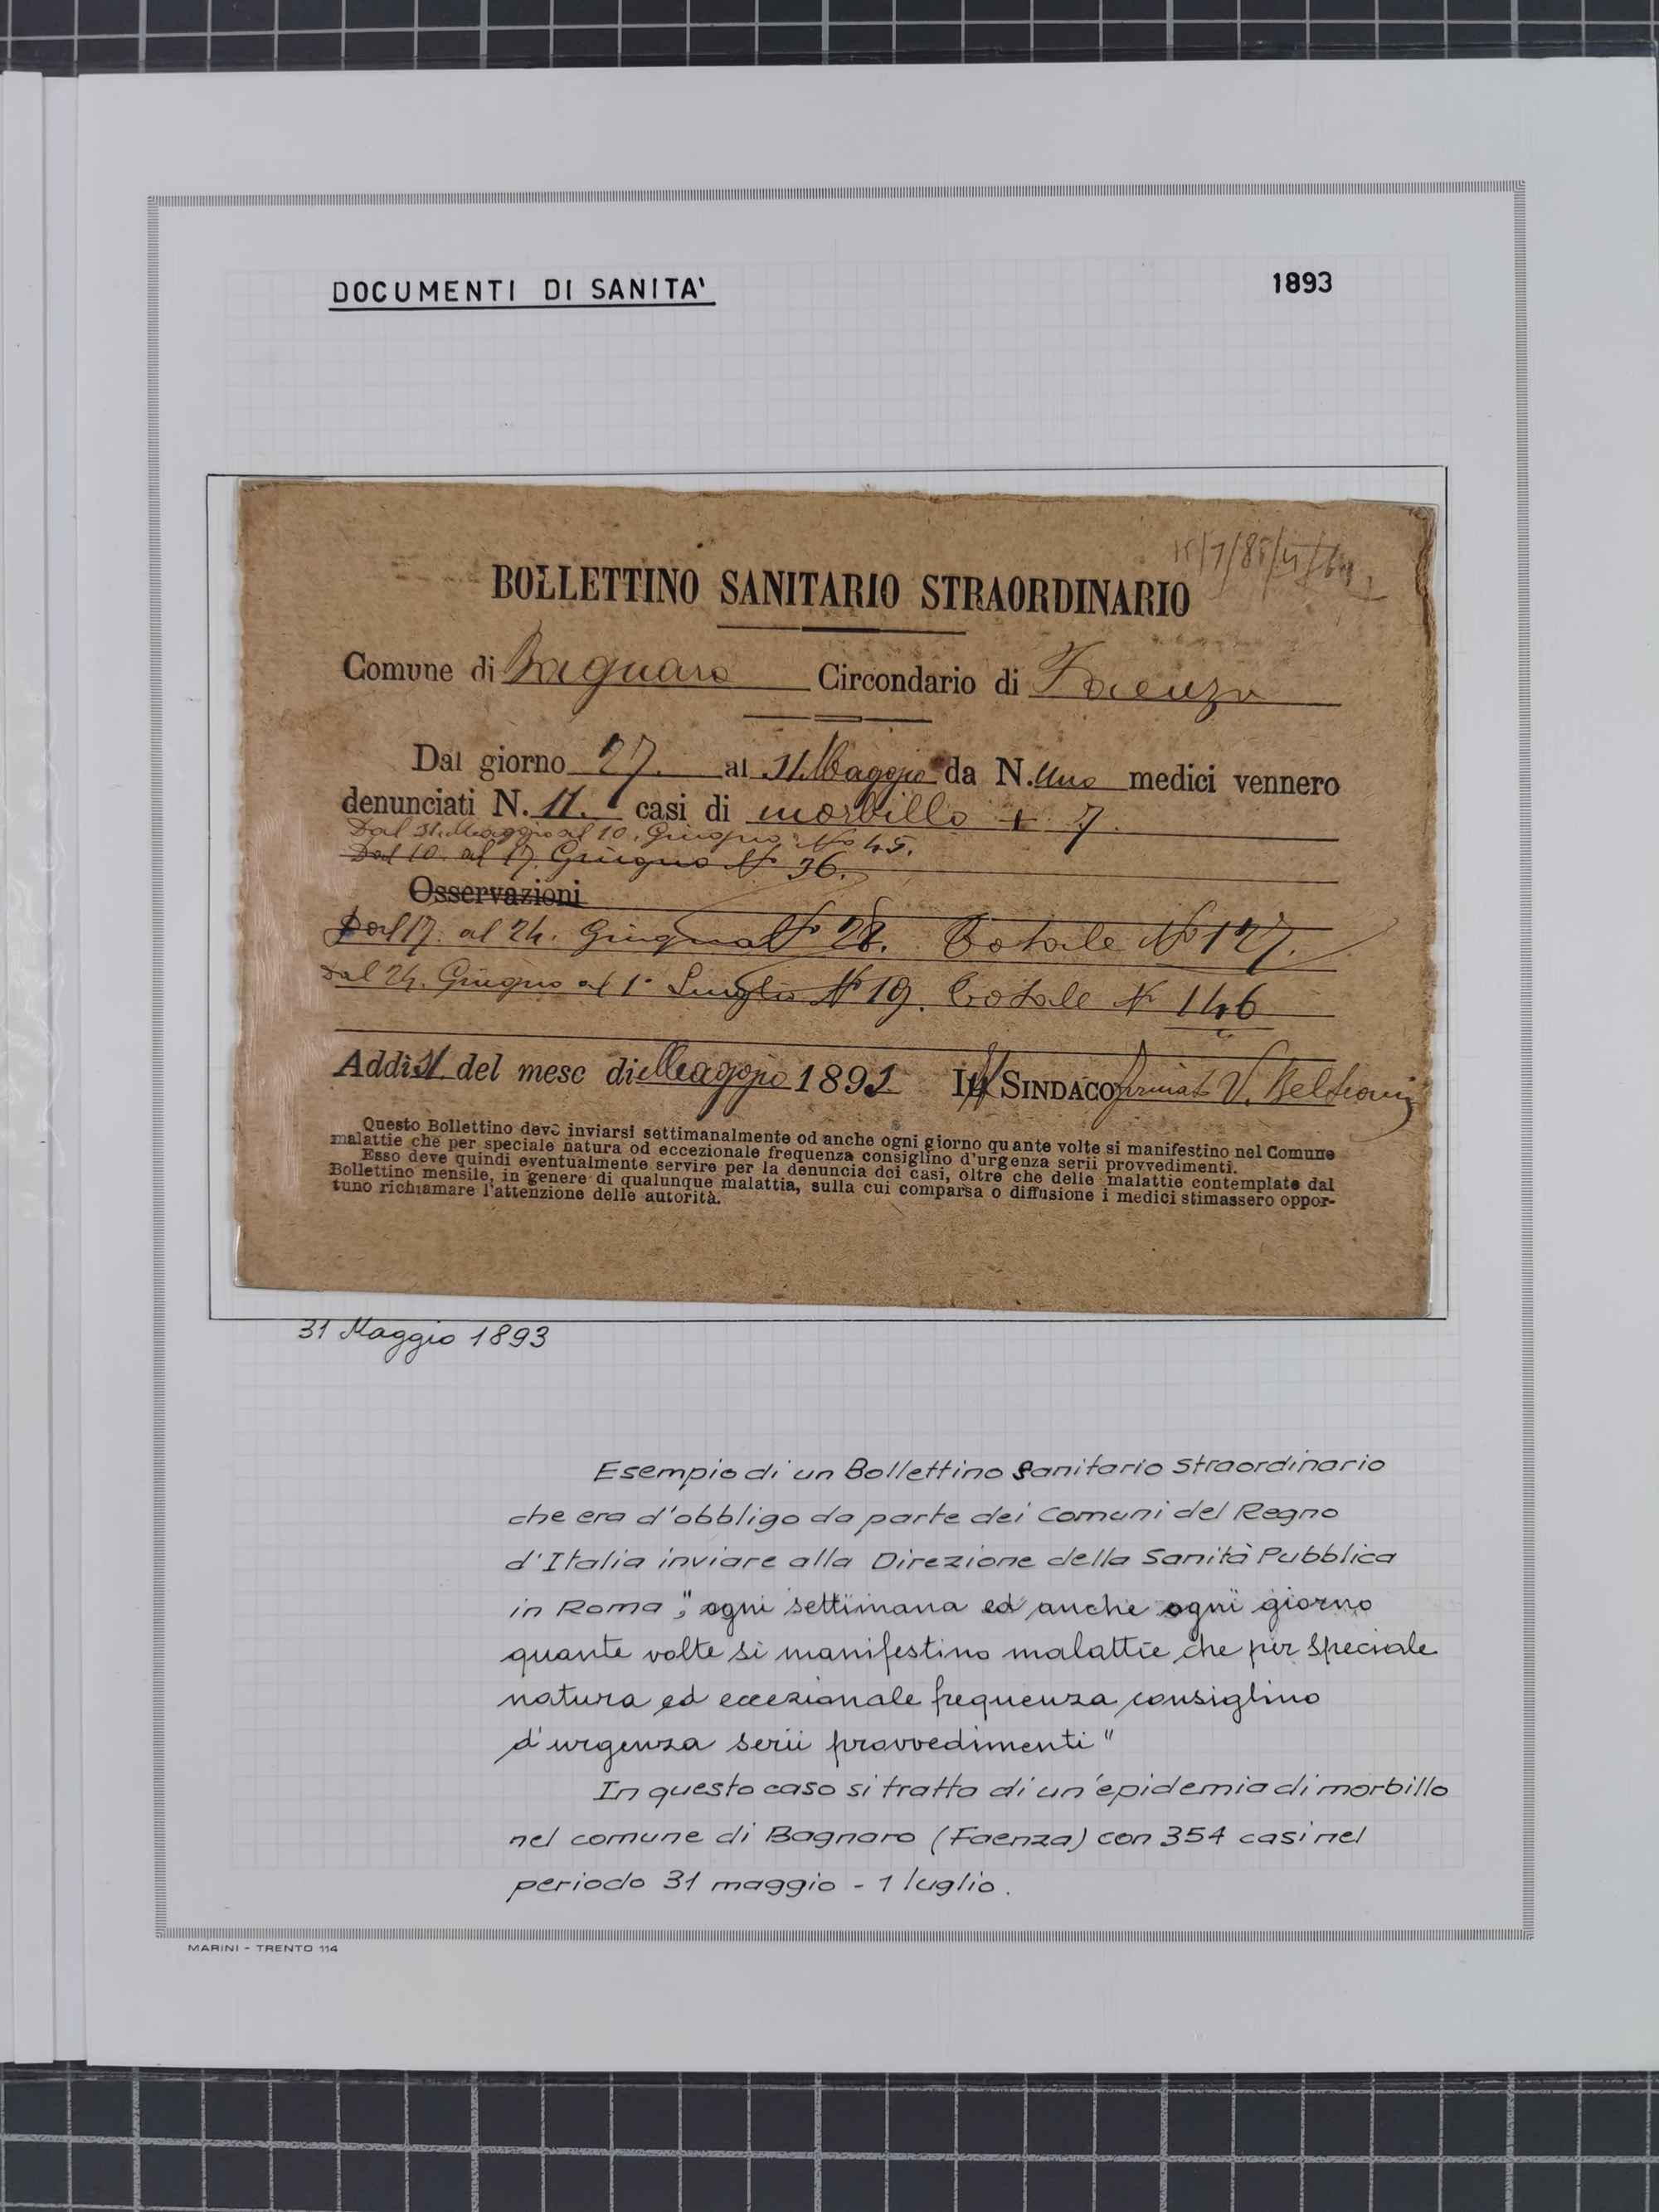 DOCUMENTI DI SANITA' 1893
BOLLETTINO SANITARIO STRAORDINARIO
Comune di Bagnara Circondario di Faenza
Dal giorno 27. al 31 Maggio da N. Uno medici vennero
denunciati N. 11. casi di morbillo + 7.
Dal 31. Maggio al 10. Giugno N° 45.
Dal 10. al 17. Giugno N° 36.
Osservazioni
Dal 17. al 24. Giugno N° 28. Totale N° 127.
Dal 24. Giugno al 1° Luglio N° 19. Totale N° 146
Addì 31 del mese di Maggio 1893 Il SINDACO firmato V. Beltrani
Questo Bollettino deve inviarsi settimanalmente od anche ogni giorno quante volte si manifestino nel Comune
malattie che per speciale natura od eccezionale frequenza consiglino d'urgenza serii provvedimenti.
Esso deve quindi eventualmente servire per la denuncia dei casi, oltre che delle malattie contemplate dal
Bollettino mensile, in genere di qualunque malattia, sulla cui comparsa o diffusione i medici stimassero oppor-
tuno richiamare l'attenzione delle autorità.
31 Maggio 1893
Esempio di un Bollettino Sanitario Straordinario
che era d'obbligo da parte dei Comuni del Regno
d'Italia inviare alla Direzione della Sanità Pubblica
in Roma, "ogni settimana ed anche ogni giorno
quante volte si manifestino malattie che per speciale
natura ed eccezionale frequenza consiglino
d'urgenza serii provvedimenti"
In questo caso si tratta di un'epidemia di morbillo
nel comune di Bagnaro (Faenza) con 354 casi nel
periodo 31 maggio - 1 luglio.
MARINI - TRENTO 114